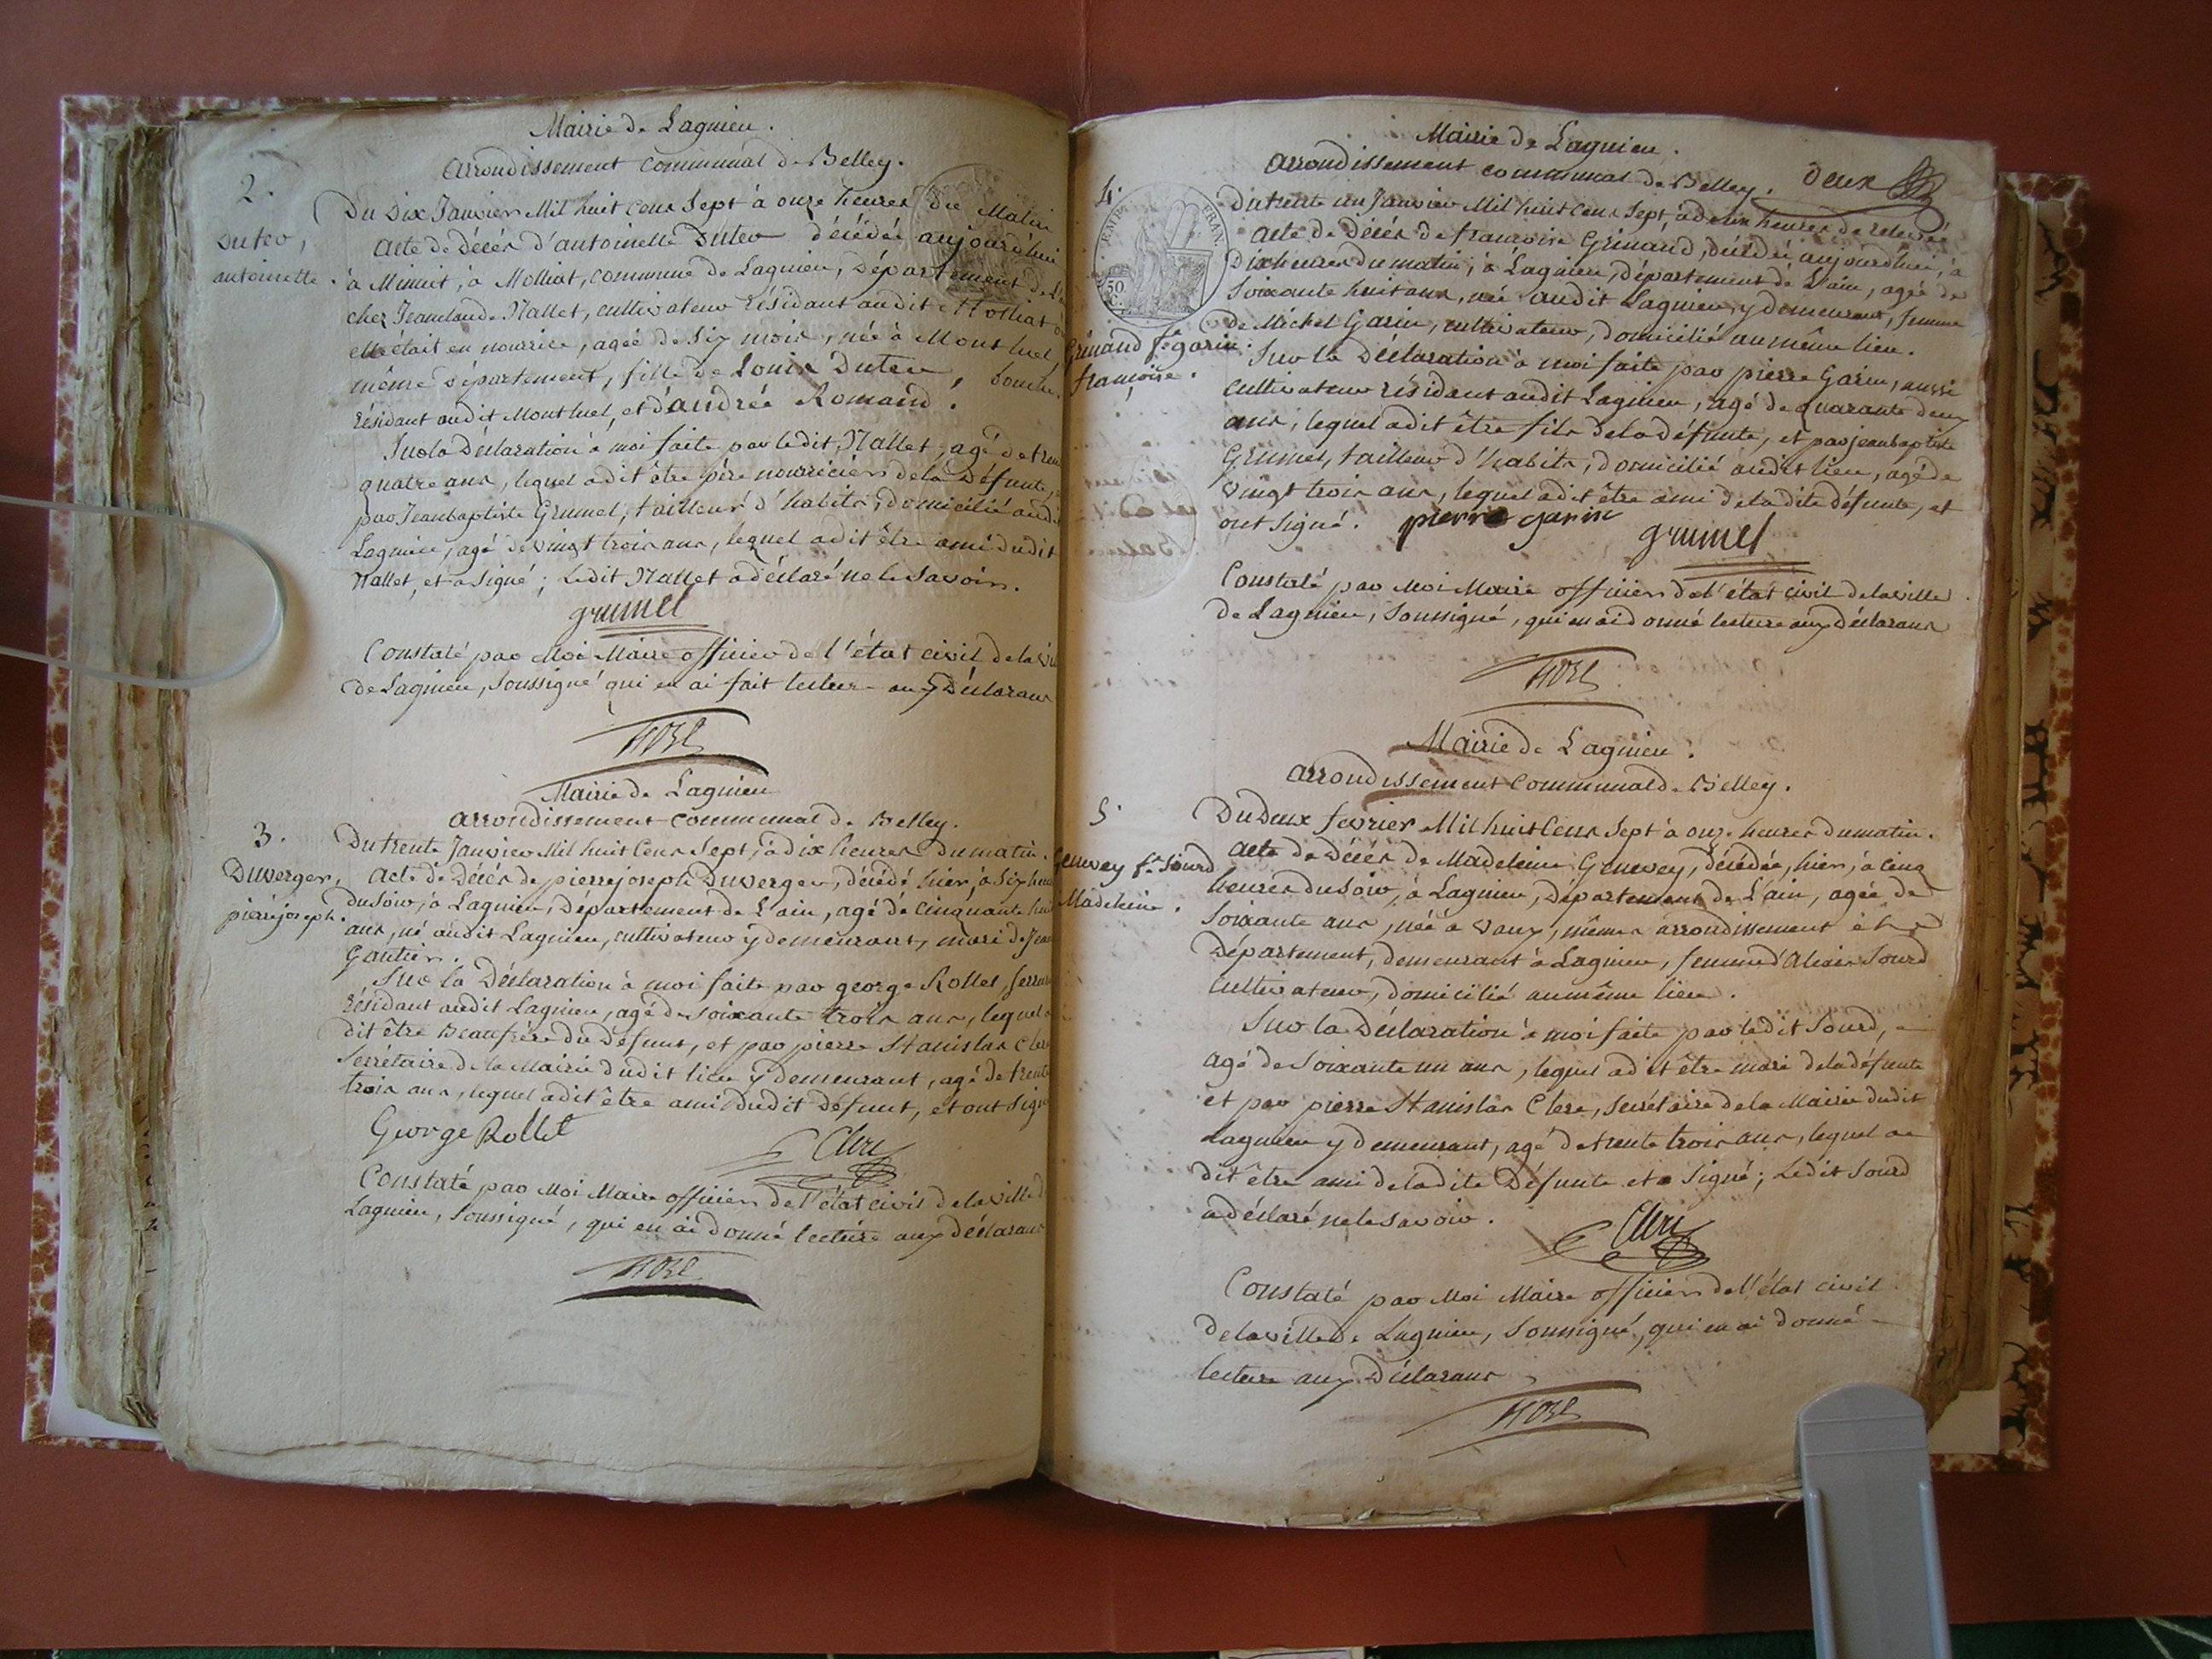 Mairie de Lagnieu.
Arrondissement Communal de Belley.
2.
Duteo,
antoinette.
Du Dix Janvier Mil huit Cens Sept à onze heures du Matin
Acte de Décès d'antoinette Duteo décédée aujourdhui
à Minuit, à Molliat, Commune de Lagnieu, Département de L'a
chez Jeanclaude Nallet, cultivateur résidant audit Molliat où
elle était en nourrice, agée de Six mois, née à Montluel
même Département, fille de Louis Duteo,
résidant audit Montluel, et d'andrée Romand.
Sur la Déclaration à moi faite par ledit Nallet, agé de tren
quatre ans, lequel a dit être père nourricier de la Défunte,
par Jeanbaptiste Grumel, tailleur d'habits, domicilié audi
Lagnieu, agé de vingt trois ans, lequel a dit être ami dudit
Nallet, et a Signé; Ledit Nallet a déclaré ne le Savoir.
grumel
Constaté par Moi Maire officier de l'état civil de la vil
de Lagnieu, Soussigné qui en ai fait lecture aux Déclarans
Mairie de Lagnieu
Arrondissement Communal de Belley.
3.
Duverger,
pierre joseph.
Du trente Janvier Mil huit Cens Sept, à dix heures du matin.
Acte de Décès de pierre joseph Duverger, décédé hier, à Six heu
du Soir, à Lagnieu, Département de L'ain, agé de Cinquante hui
ans, né audit Lagnieu, cultivateur y demeurant, mari de Jean
Gautier.
Sur la Déclaration à moi faite par george Rollet, Serru
résidant audit Lagnieu, agé de soixante trois ans, lequel a
dit être Beaufrère du Défunt, et par pierre Stanislas Clerc
Secrétaire de la Mairie dudit lieu y demeurant, agé de trente
trois ans, lequel a dit être ami dudit Défunt, et ont Signé
George Rollet
Clerc
Constaté par Moi Maire officier de l'état civil de la ville d
Lagnieu, Soussigné, qui en ai donné lecture aux déclarans
Mairie de Lagnieu.
Arrondissement communal de Belley. deux
4.
TIMB. FRAN.
50
C.
Grimand fe. garin.
françoise.
Du trente un Janvier Mil huit Cens Sept, à deux heures de relevée
Acte de Décès de françoise Grimand, décédée aujourdhui, à
Dix heures du matin, à Lagnieu, département de L'ain, agée de
Soixante huit ans, née audit Lagnieu, y demeurant, femme
de Michel Garin, cultivateur, domicilié au même lieu.
Sur la Déclaration à moi faite par pierre Garin, aussi
cultivateur résidant audit Lagnieu, agé de quarante deux
ans, lequel a dit être fils de la défunte, et par jeanbaptiste
Grumel, tailleur d'habits, domicilié audit lieu, agé de
vingt trois ans, lequel a dit être ami de la dite défunte, et
ont Signé. pierre garin
grumel
Constaté par Moi Maire officier de l'état civil de la ville
de Lagnieu, Soussigné, qui en ai donné lecture aux déclarans
Mairie de Lagnieu.
Arrondissement Communal de Belley.
5.
Genevey fe. Sourd
Madeleine.
Du Deux fevrier Mil huit Cens Sept à onze heures du matin.
Acte de Décès de Madeleine Genevey, décédée, hier, à Cinq
heures du Soir, à Lagnieu, Département de L'ain, agée de
Soixante ans, née à Vaux, mêmes arrondissement et
Département, demeurant à Lagnieu, femme d'Alexis Sourd
Cultivateur, domicilié au même lieu.
Sur la Déclaration à moi faite par ledit Sourd,
agé de Soixante un ans, lequel a dit être mari de la défunte
et par pierre Stanislas Clerc, Secrétaire de la Mairie dudit
Lagnieu y demeurant, agé de trente trois ans, lequel a
dit être ami de la dite Défunte et a Signé; Ledit Sourd
a déclaré ne le Savoir.
Clerc
Constaté par Moi Maire officier de l'état civil
de la ville de Lagnieu, Soussigné, qui en ai donné
lecture aux Déclarans